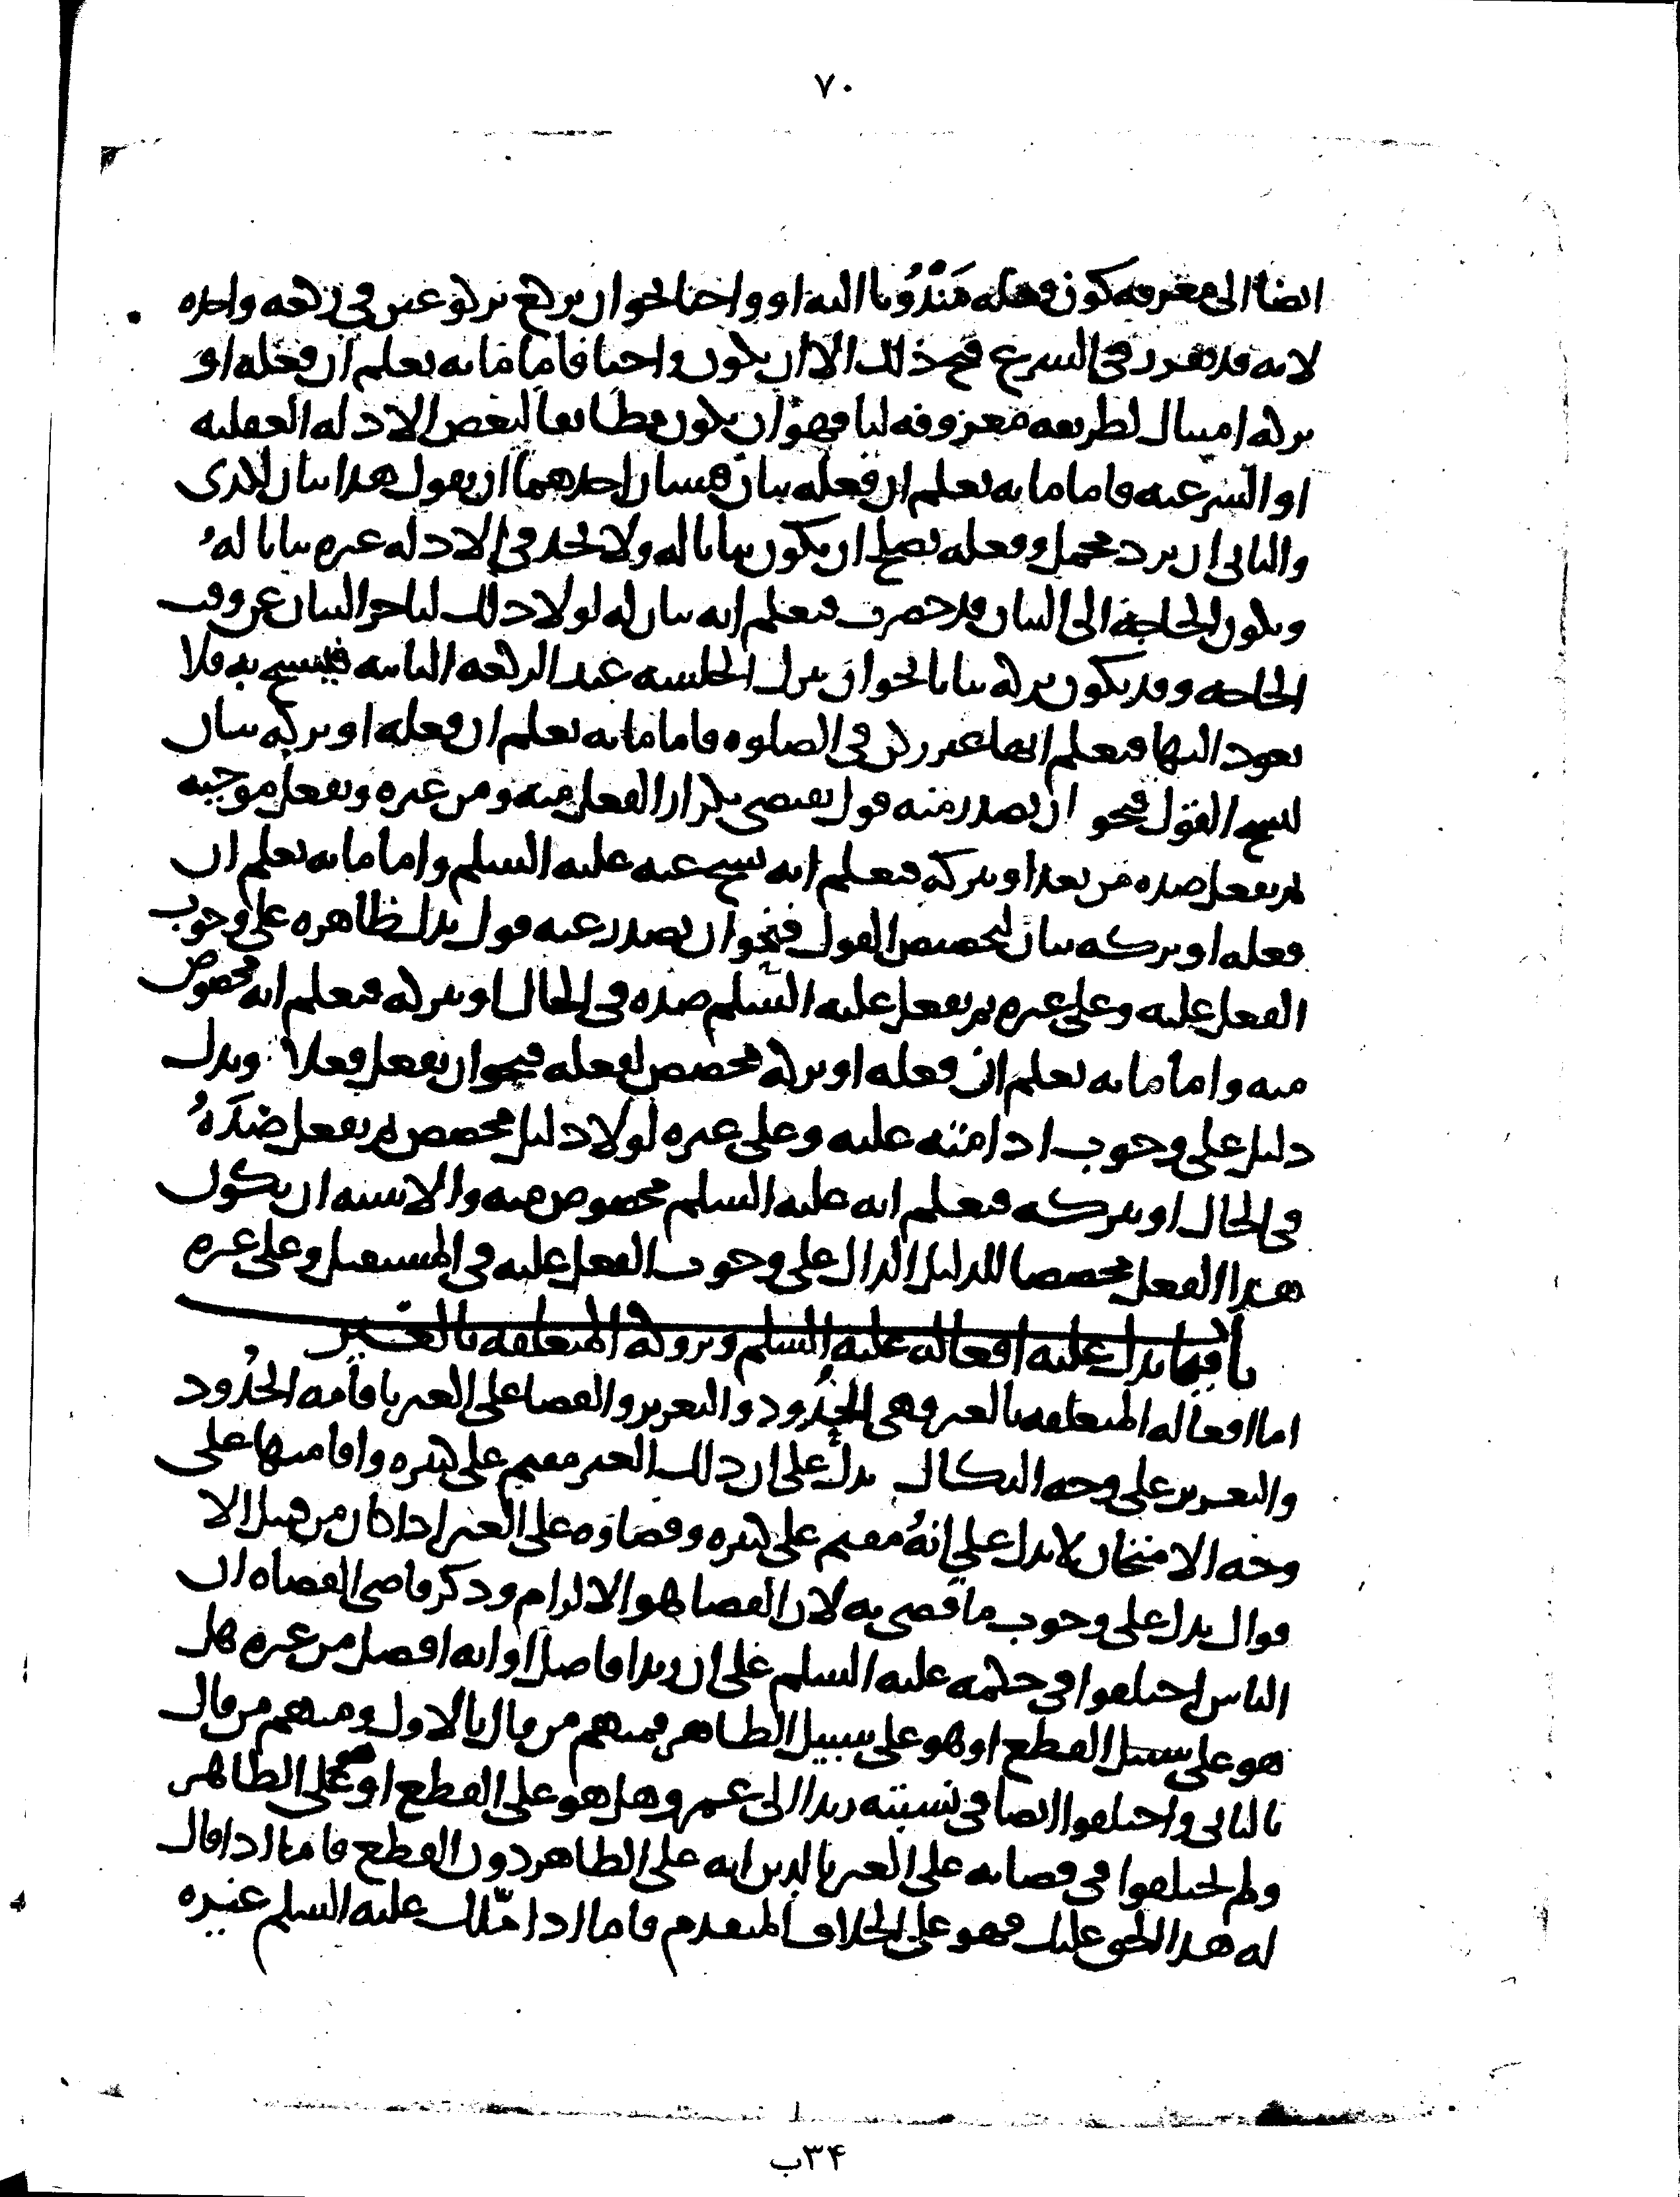 ٧٠
ايضا الى معرفة كون فعله مندوبا اليه او واجبا نحو ان يركع ركوعين في ركعة واحدة
لانه قد تقرر في الشرع قبح ذلك الا ان يكون واجبا فاما ما به يعلم ان فعله او
تركه امتثال لطريقه معروفه لنا فهو ان يكون مطابقا لبعض الادله العقليه
او الشرعيه فاما ما به يعلم ان فعله بيان فشيان احدهما ان يقول هذا بيان لكذى
والثاني ان يرد مجمل وفعله يصلح ان يكون بيانا له ولا نجد في الادله غيره بيانا له
ويكون الحاجة الى البيان قد حضرت فيعلم انه بيان له لولا ذلك لتاخر البيان عن وقت
الحاجه وقد يكون تركه بيانا نحو ان يترك الجلسه عند الركعه الثانيه فيسبح به فلا
يعود اليها فيعلم انها غير ركن في الصلوه فاما ما به يعلم ان فعله او تركه بيان
لنسخ القول فنحو ان يصدر منه قول يقتضي تكرار الفعل منه ومن غيره ويفعل موجبه
ثم يفعل ضده من بعد او يتركه فيعلم انه نسخ عنه عليه السلم واما ما به يعلم ان
فعله او تركه بيان لتخصيص القول فنحو ان يصدر عنه قول يدل ظاهره على وجوب
الفعل عليه وعلى غيره ثم يفعل عليه السلم ضده في الحال او يتركه فيعلم انه مخصوص
منه واما ما به يعلم ان فعله او تركه مخصص لفعله فنحو ان يفعل فعلا ويدل
دليل على وجوب ادامته عليه وعلى غيره لولا دليل مخصص ثم يفعل ضده
في الحال او يتركه فيعلم انه عليه السلم مخصوص منه والاشبه ان يكون
هذا الفعل مخصصا للدليل الدال على وجوب الفعل عليه في المستقبل وعلى غيره
باب فيما يدل عليه افعاله عليه السلم وتروكه المتعلقه بالغير
اما افعاله المتعلقه بالغير فهي الحدود والتعزير والقضا على الغير فاقامه الحدود
والتعزير على وجه النكال يدل على ان ذلك الغير مقيم على كبيره واقامتها على
وجه الامتحان لا يدل على انه مقيم على كبيره وقضاوه على الغير اذا كان من قبيل الا
قوال يدل على وجوب ما قضى به لان القضا هو الالزام وذكر قاضي القضاه ان
الناس اختلفوا في حكمه عليه السلم على ان زيدا فاضل او انه افضل من غيره هل
هو على سبيل القطع او هو على سبيل الظاهر فمنهم من قال بالاول ومنهم من قال
بالثاني واختلفوا ايضا في نسبته زيدا الى عمرو هل هو على القطع او هو على الظاهر
ولم يختلفوا في قضايه على الغير بالدين انه على الظاهر دون القطع فاما اذا قال
له هذا الحق عليك فهو على الخلاف المتقدم فاما اذا ملك عليه السلم غيره
٣۴ب